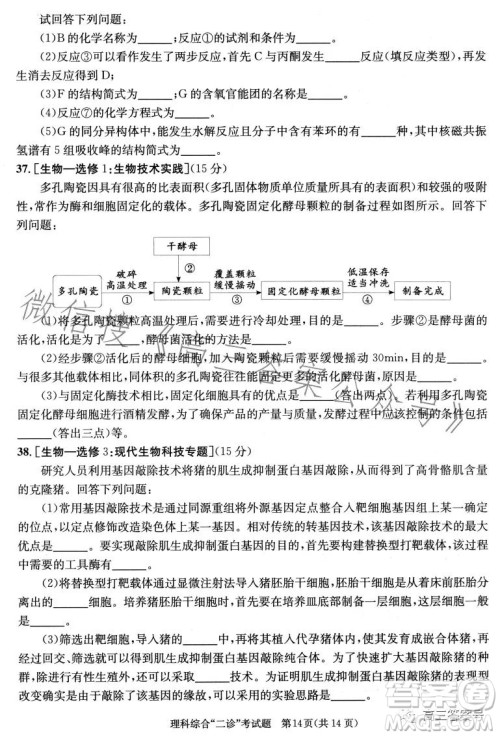 试回答下列问题：
(1)B的化学名称为______，C的分子式为______；
(2)反应③可以看作两步反应，首先C与丙酮发生______反应(填反应类型)，再发
生消去反应得到D；
(3)F的结构简式为______，G的含氧官能团的名称是______；
(4)反应⑦的化学方程式为______；
(5)G的同分异构体中，能发生银镜反应的含有苯环的有______种，其中核磁共振
氢谱有5组吸收峰的结构简式为______。
37.[生物—选修1：生物技术实践](15分)
多孔陶瓷因具有很高的比表面积(多孔固体物质单位质量所具有的表面积)和较强的吸附
能力，能作为细胞固定化的载体。多孔陶瓷固定化酵母颗粒的制备过程如图所示。回答下
列问题：
干酵母
②
多孔陶瓷
破碎
高温处理
①
陶瓷颗粒
覆盖颗粒
缓慢摇动
③
固定化酵母颗粒
低温保存
适当冲洗
④
制备完成
(1)将多孔陶瓷颗粒高温处理后，需要进行冷却处理，目的是______。步骤②是酵母菌的
活化，活化是为了______，活化后的体积会______。
(2)经步骤②活化后的酵母细胞，在加入陶瓷颗粒后需要缓慢摇动30min，目的是______。
多孔陶瓷往往要选择孔径较大的，以便固定更多的活化酵母菌，原因是______。
(3)与固定化酶技术相比，固定化细胞技术的优点是______(答出两点)。若利用多孔陶瓷
固定化酵母细胞进行酒精发酵，为了尽可能多地获得酒精，需要控制的条件包括______
______(答出三点)等。
38.[生物—选修3：现代生物科技专题](15分)
研究人员利用基因敲除技术将猪的肌生成抑制蛋白基因敲除，得到了高骨骼肌含量
的克隆猪。回答下列问题：
(1)常用基因敲除技术是通过同源重组将外源基因定点整合入靶细胞基因组上某一确
定的位点，以达到定点修饰改造染色体上某一基因的目的。该技术对基因敲除的最大
优点是______。要实现敲除肌生成抑制蛋白基因的目的，在技术上应该敲除该基因的
______。
(2)将替换型打靶载体以显微注射法导入猪胚胎干细胞，胚胎干细胞是从着床前胚胎分
离出的______。培养猪胚胎干细胞时，为维持细胞不分化的状态，应在培养液中加入
______。
(3)筛选出靶细胞，导入猪的______中，再将其植入代孕猪体内，使其发育成嵌合体猪。
再经过回交、筛选就可以得到肌生成抑制蛋白基因敲除纯系猪。该过程用到的生物技术有
______(答出两点)。为证明肌生成抑制蛋白基因敲除技术成功，应检测______。
理科综合“二诊”考试题 第14页(共14页)
微信搜《高三答案公众号》
高三答案号